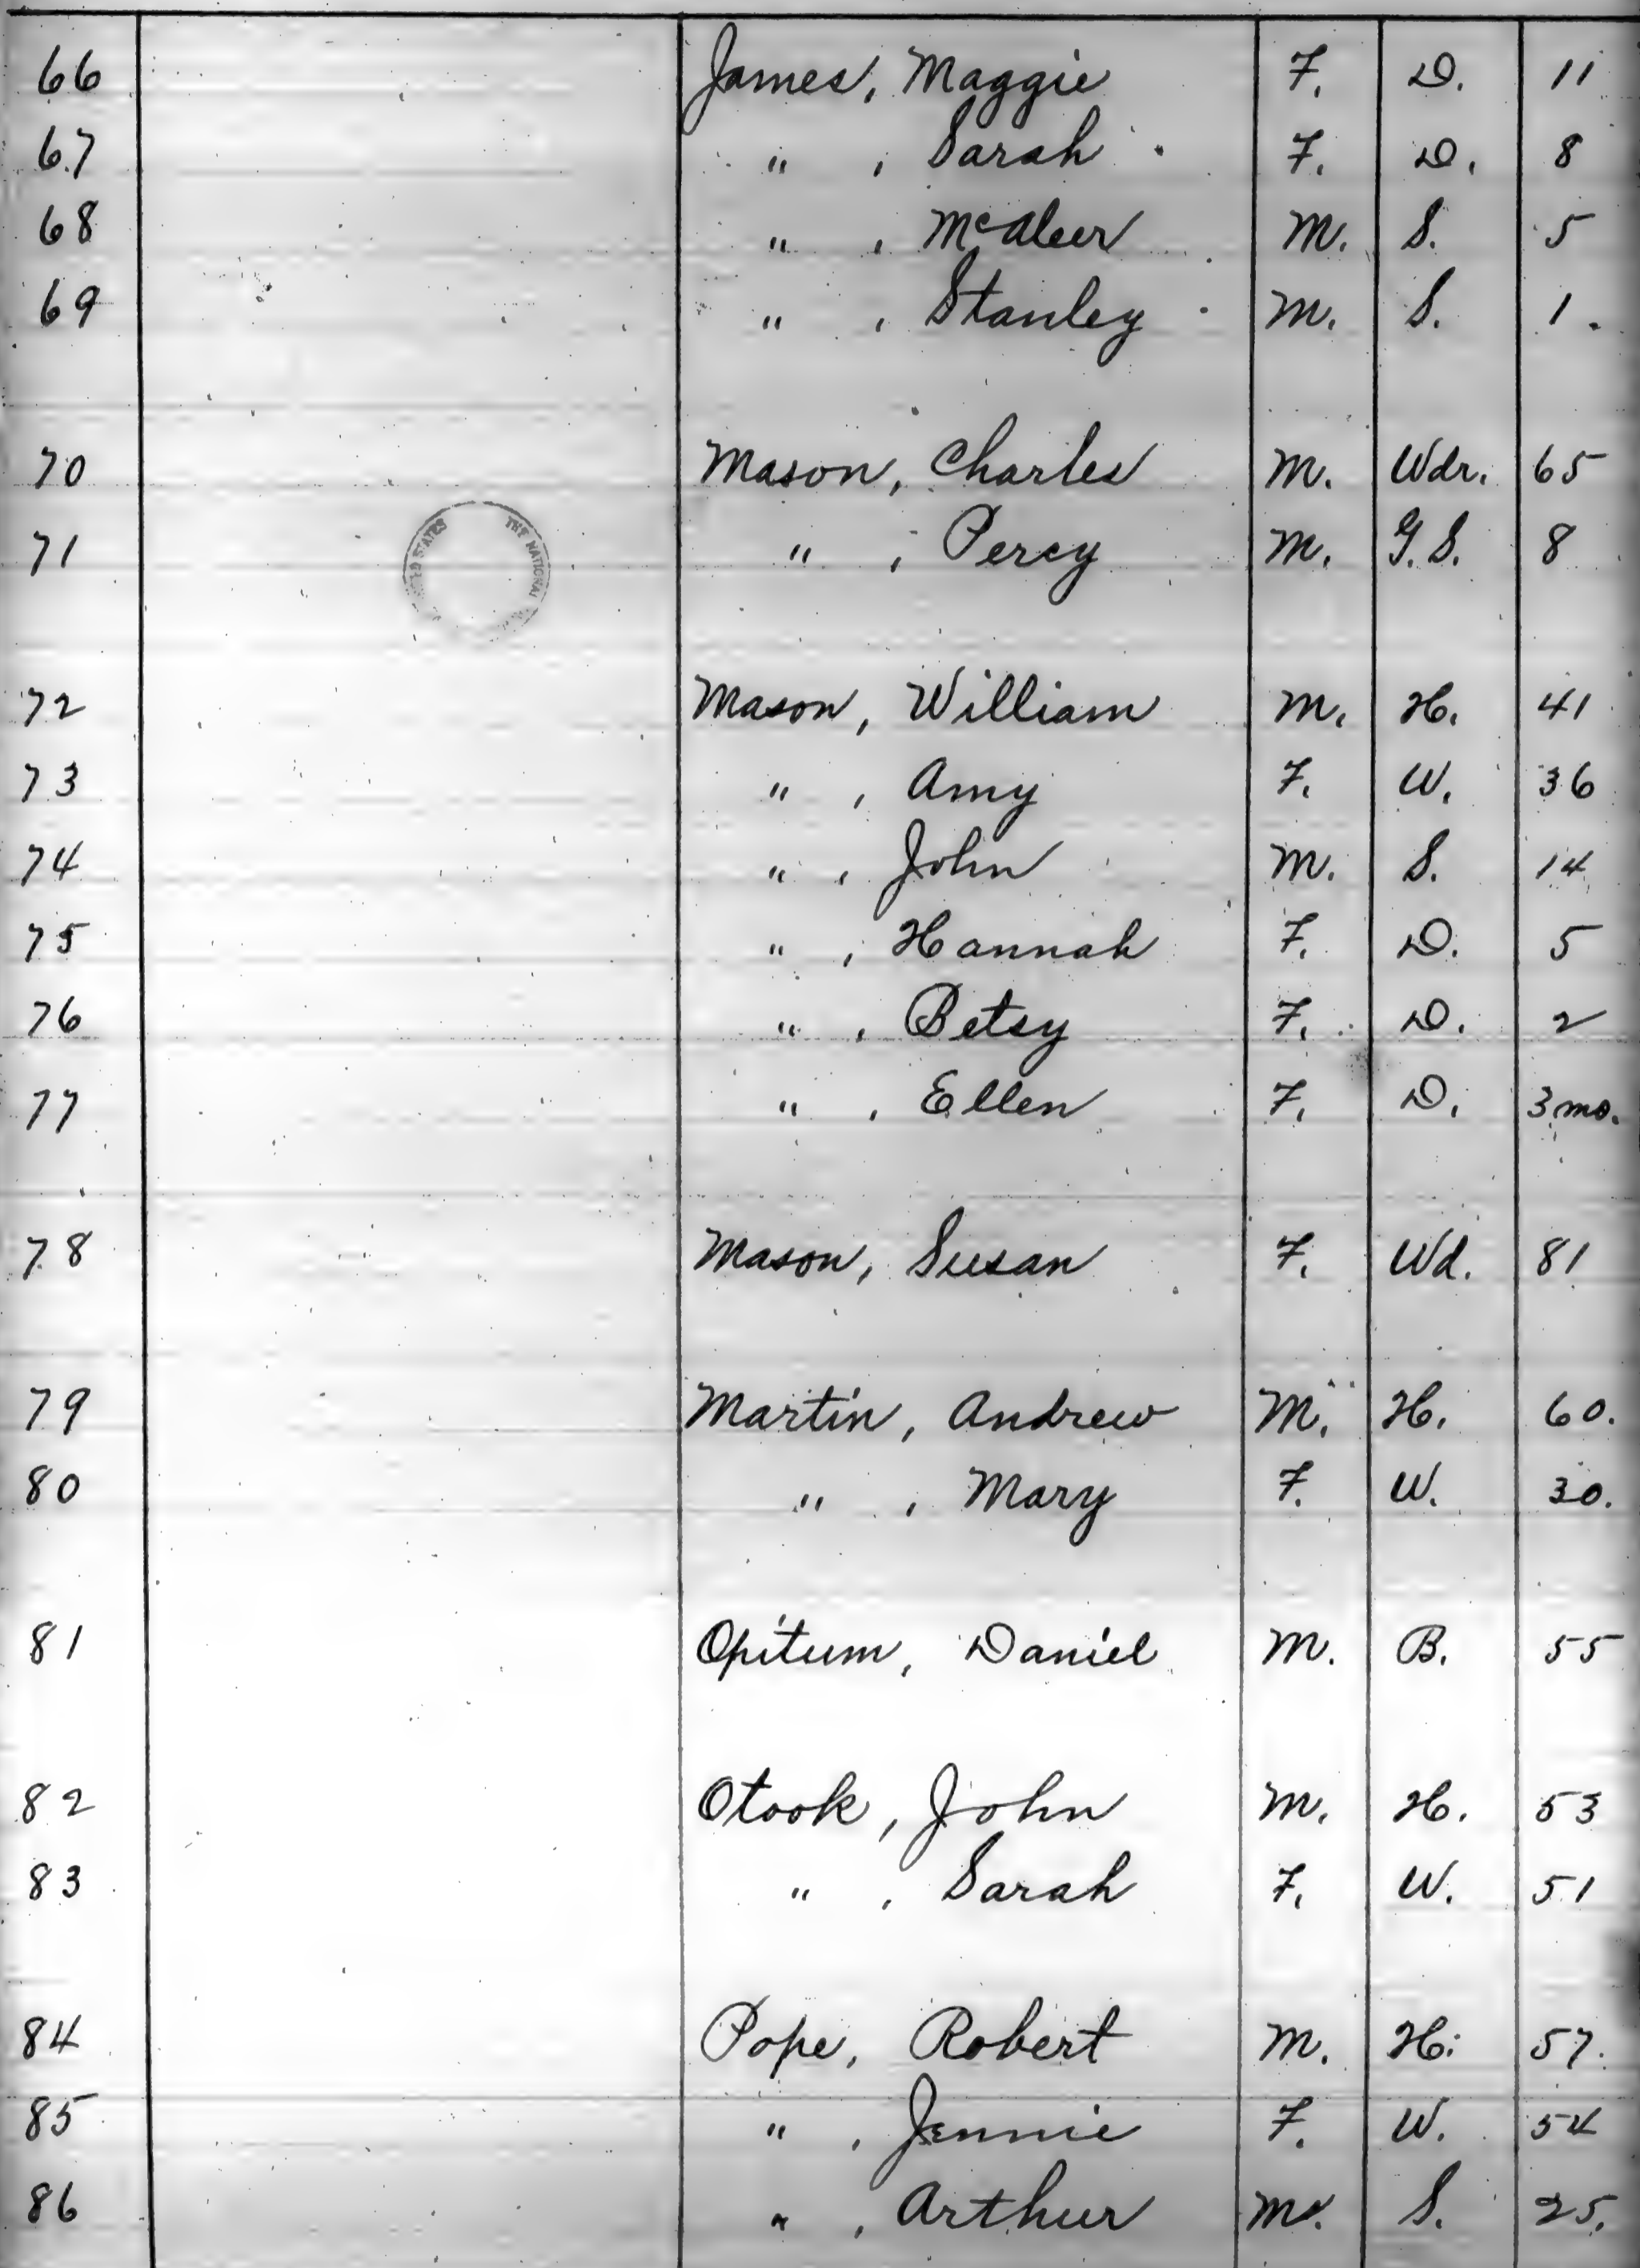 66 James, Maggie F. D. 11
67 " , Sarah F. D. 8
68 " , McAleer M. S. 5
69 " , Stanley M. S. 1.
70 Mason, Charles M. Wdr. 65
71 " , Percy M. G.S. 8
THE NATIONAL
STATES
72 Mason, William M. H. 41
73 " , Amy F. W. 36
74 " , John M. S. 14
75 " , Hannah F. D. 5
76 " , Betsy F. D. 2
77 " , Ellen F. D. 3 mo.
78 Mason, Susan F. Wd. 81
79 Martin, Andrew M. H. 60.
80 " , Mary F. W. 30.
81 Opitum, Daniel M. B. 55
82 Otook, John M. H. 53
83 " , Sarah F. W. 51
84 Pope, Robert M. H. 57.
85 " , Jennie F. W. 54
86 " , Arthur M. S. 25.